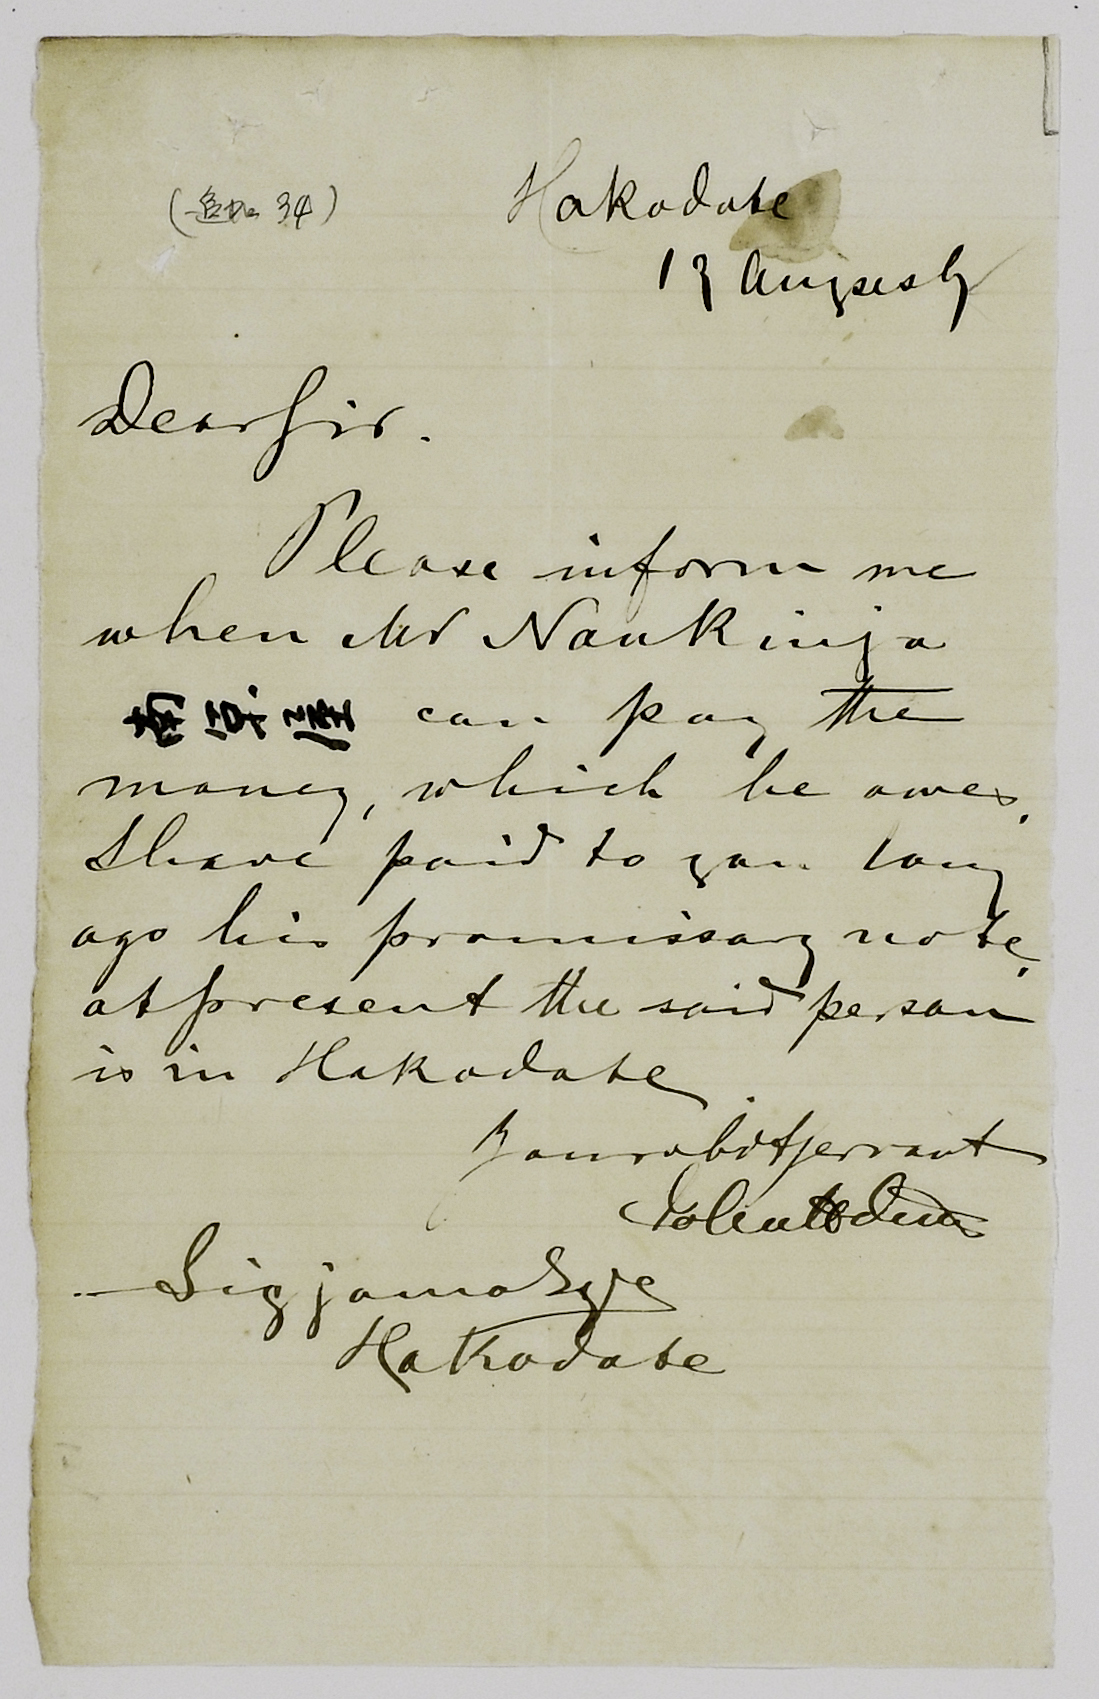 Hakodate
13 August
Dear Sir.
Please inform me
when Mr Nankinja
can pay the
money, which he owes.
I have paid to you long
ago his promissory note.
at present the said person
is in Hakodate
Your obdt servant
Hakodate